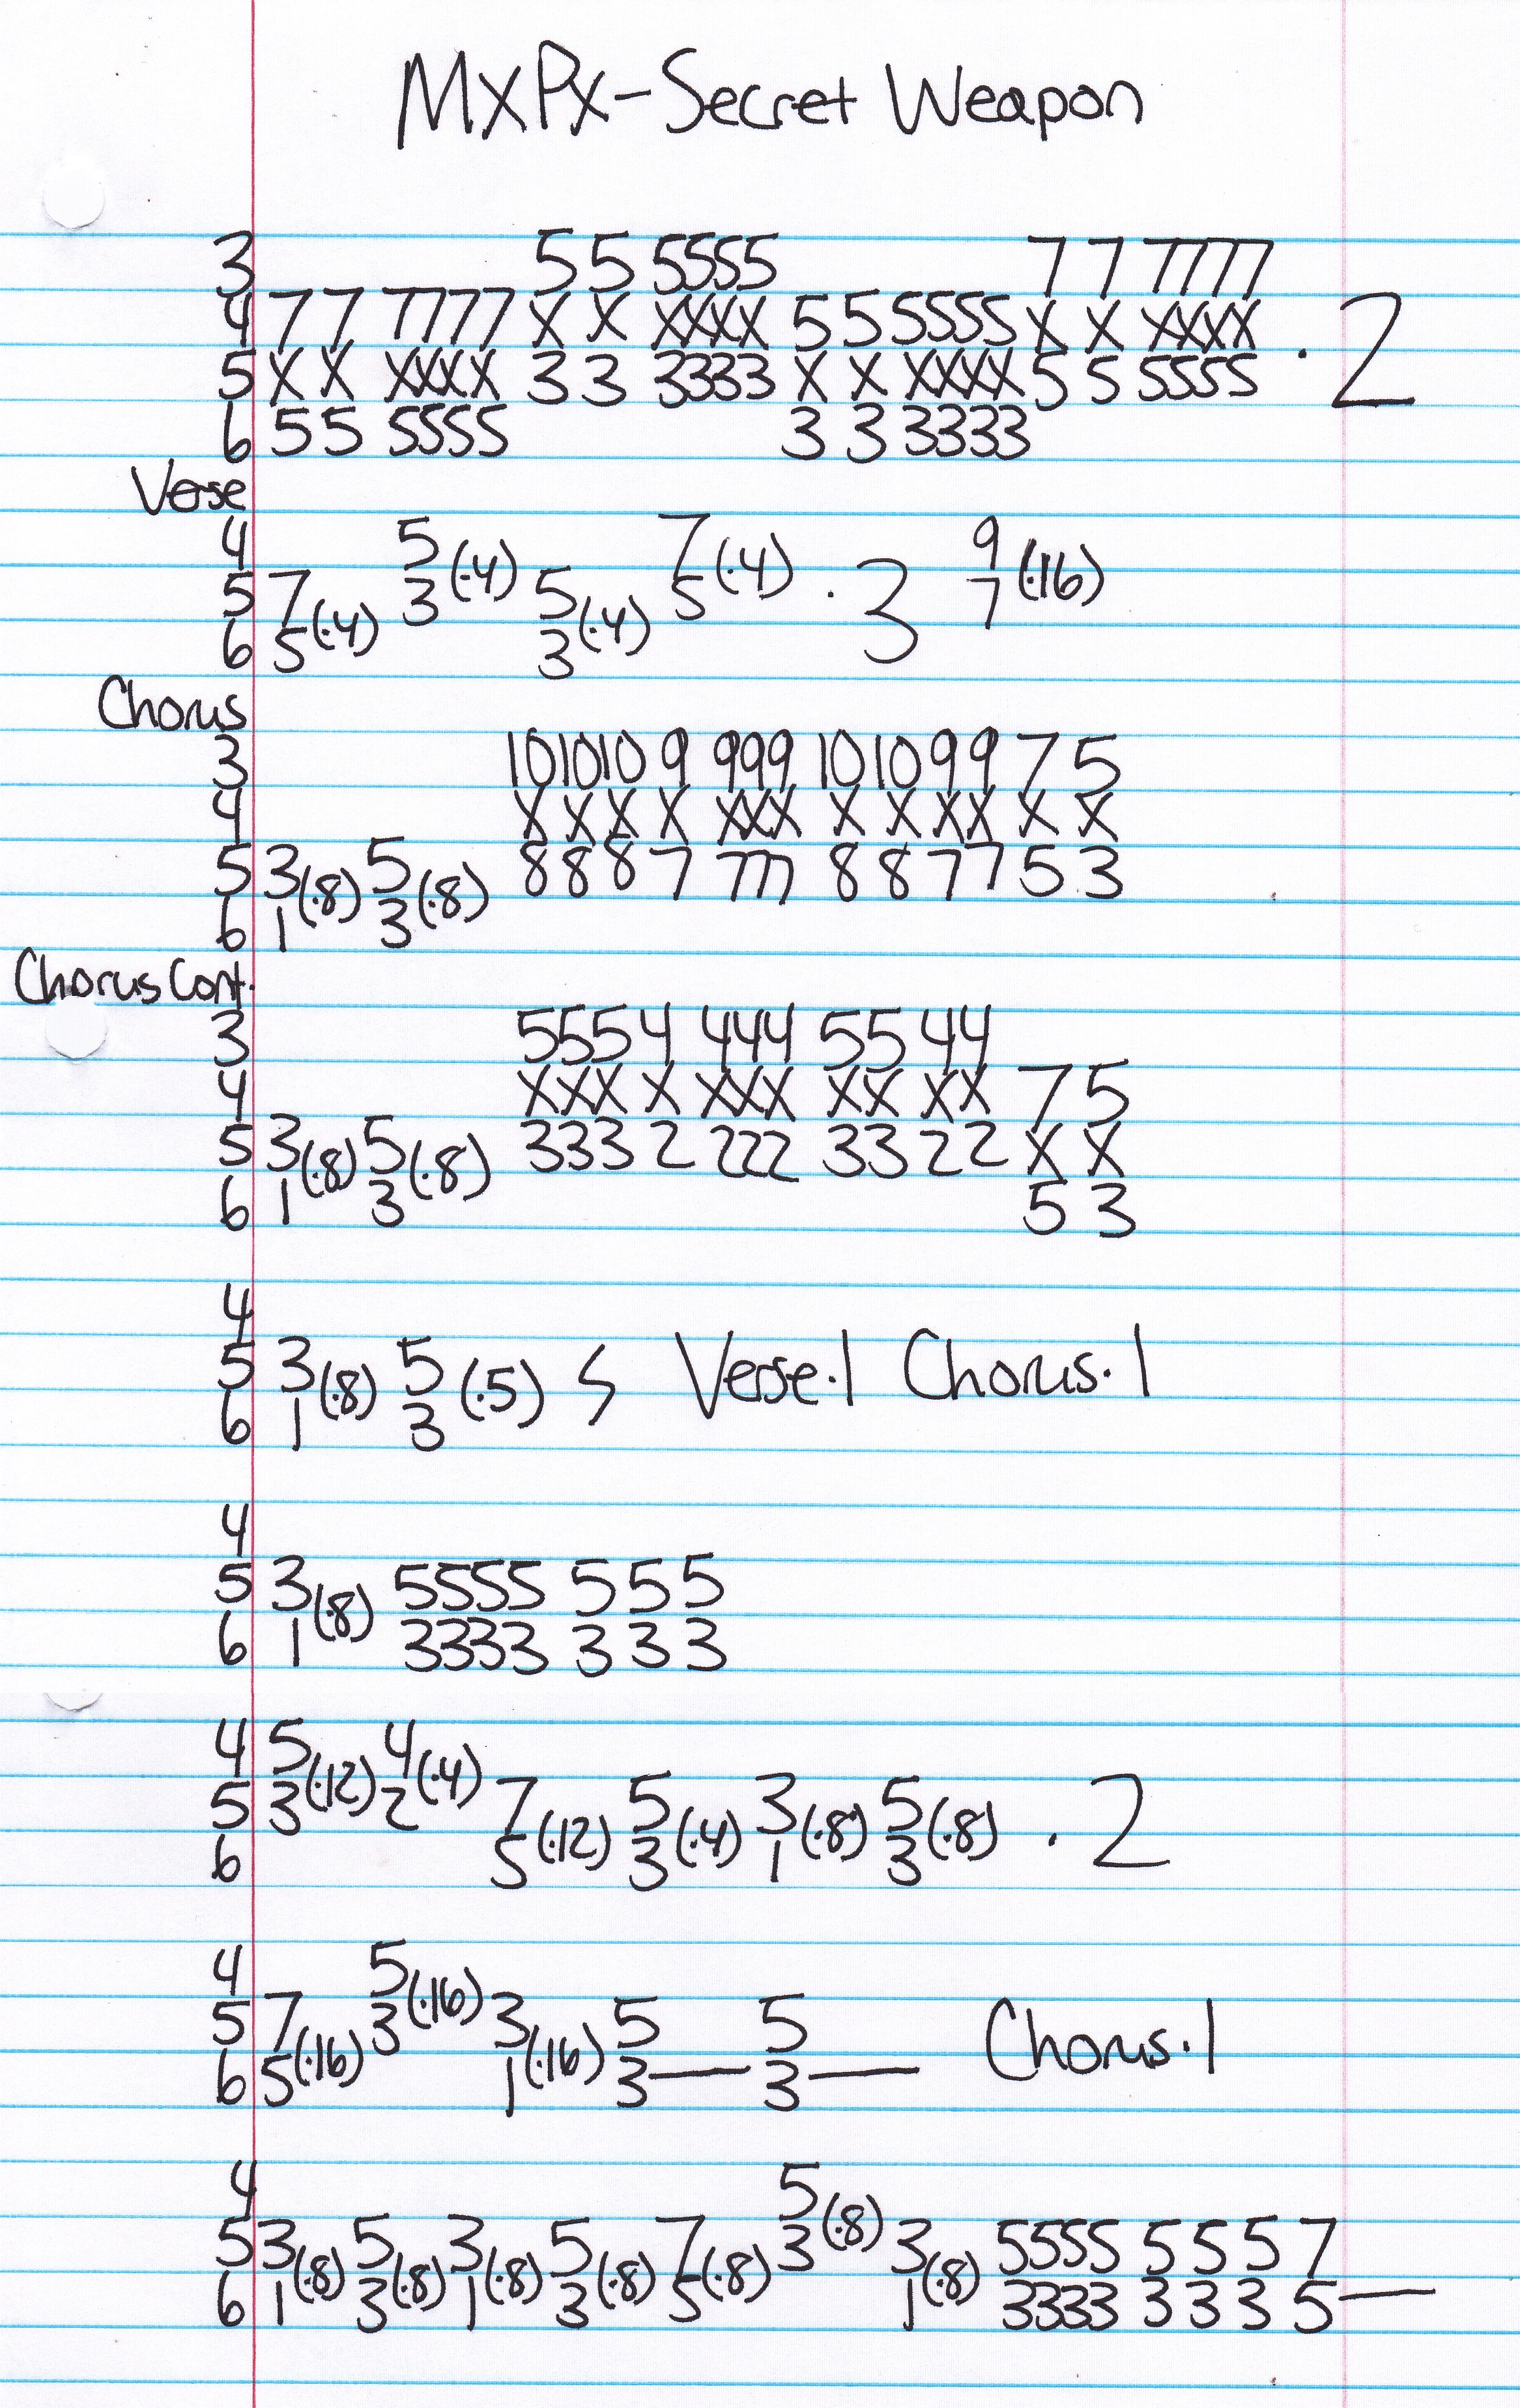 MXPX-Secret Weapon
3 5 5 5555 7 7 7777
4 7 7 7777 X X XXXX 5 5 5555 X X XXXX · 2
5 X X XXXX 3 3 3333 X X XXXX 5 5 5555
6 5 5 5555 3 3 3333
Verse
4 5 (·4) 7 (·4) 9 (·16)
5 7 (·4) 3 5 (·4) 5 · 3 7
6 5 3
Chorus
3 10 10 10 9 999 10 10 9 9 7 5
4 X X X X XXX X X X X X X
5 3 (·8) 5 (·8) 8 8 8 7 777 8 8 7 7 5 3
6 1 3
Chorus Cont.
3 5 5 5 4 444 5 5 4 4
4 X X X X XXX X X X X 7 5
5 3 (·8) 5 (·8) 3 3 3 2 222 3 3 2 2 X X
6 1 3 5 3
4
5 3 (·8) 5 (·5) Verse·1 Chorus·1
6 1 3
4
5 3 (·8) 5555 5 5 5
6 1 3333 3 3 3
4 5 (·12) 4 (·4)
5 3 2 7 (·12) 5 (·4) 3 (·8) 5 (·8) · 2
6 5 3 1 3
4 5 (·16)
5 7 (·16) 3 3 (·16) 5 5 Chorus·1
6 5 1 3— 3—
4 5 (·8)
5 3 (·8) 5 (·8) 3 (·8) 5 (·8) 7 (·8) 3 3 (·8) 5555 5 5 5 7
6 1 3 1 3 5 1 3333 3 3 3 5—